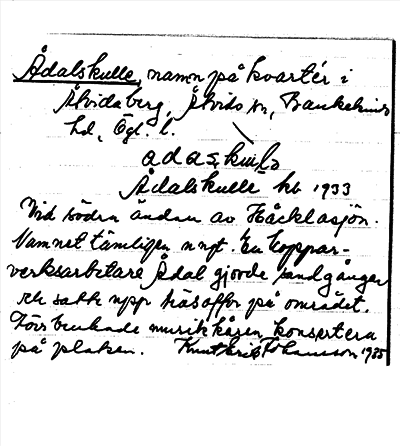 Ådalskulle, namn på kvartér i
Åtvidaberg, Åtvids sn, Bankekinds
hd, Ögl. l.
Ådalskulle hb 1933
Vid södra ändan av Håcklasjön.
Namnet tämligen nytt. En koppar-
verksarbetare Ådal gjorde sandgånger
och satte upp häsoffor på området.
Förr brukade musikkåren konsertera
på platsen. Knut Erik Johansson 1935